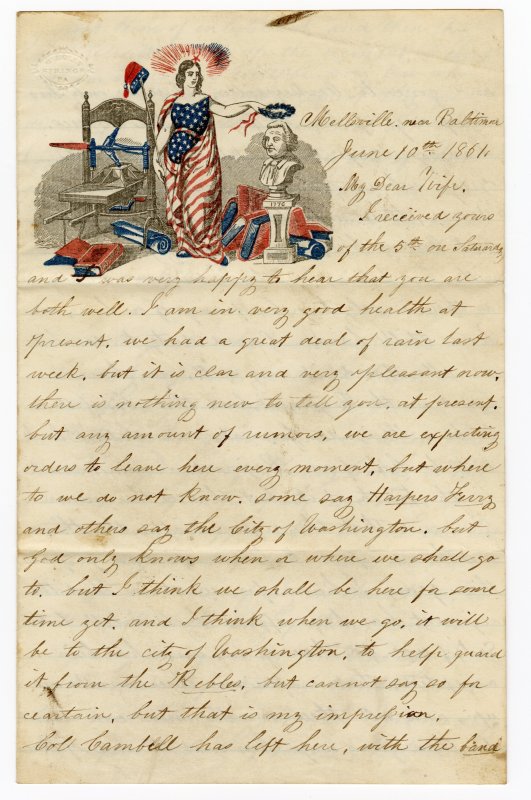 SPRINGS
1776
Mellsville. near Baltimore
June 10th 1861.
My Dear Wife.
I received yours
of the 5th on Saturday
and I was very happy to hear that you are
both well. I am in very good health at
present. we had a great deal of rain last
week. but it is clar and very pleasant now.
there is nothing new to tell you. at present.
but any amount of rumors. we are expecting
orders to leave here every moment. but where
to we do not know. some say Harpers Ferry
and others say the City of Washington. but
God only knows when or where we shall go
to. but I think we shall be here for some
time yet. and I think when we go. it will
be to the city of Washington. to help guard
it from the Rebles. but cannot say so for
ceartain. but that is my impression.
Col Cambell has left here, with the band